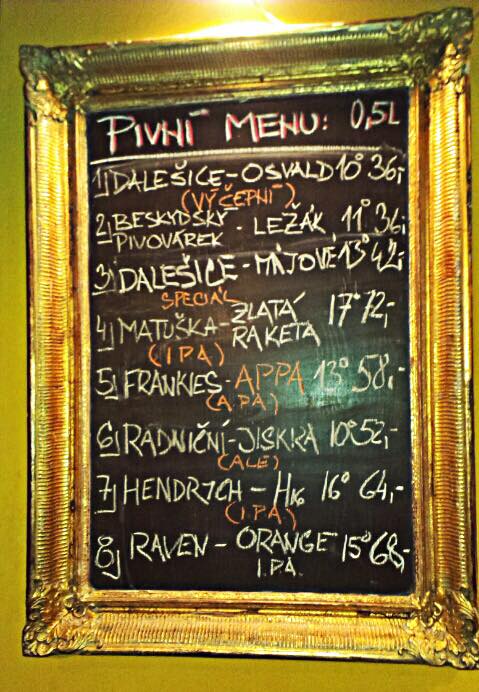 PIVNÍ MENU: 0,5L
1) DALEŠICE-OSVALD 10° 36,-
(VÝČEPNÍ)
2) BESKYDSKÝ
PIVOVÁREK - LEŽÁK 11° 36,-
3) DALEŠICE-MÁJOVÉ 13° 42,-
SPECIÁL
4) MATUŠKA-ZLATÁ
RAKETA 17° 72,-
(IPA)
5) FRANKIES-APPA 13° 58,-
(APA)
6) RADNIČNÍ-JISKRA 10° 52,-
(ALE)
7) HENDRYCH - H16 16° 64,-
(IPA)
8) RAVEN - ORANGE 15° 68,-
I.P.A.